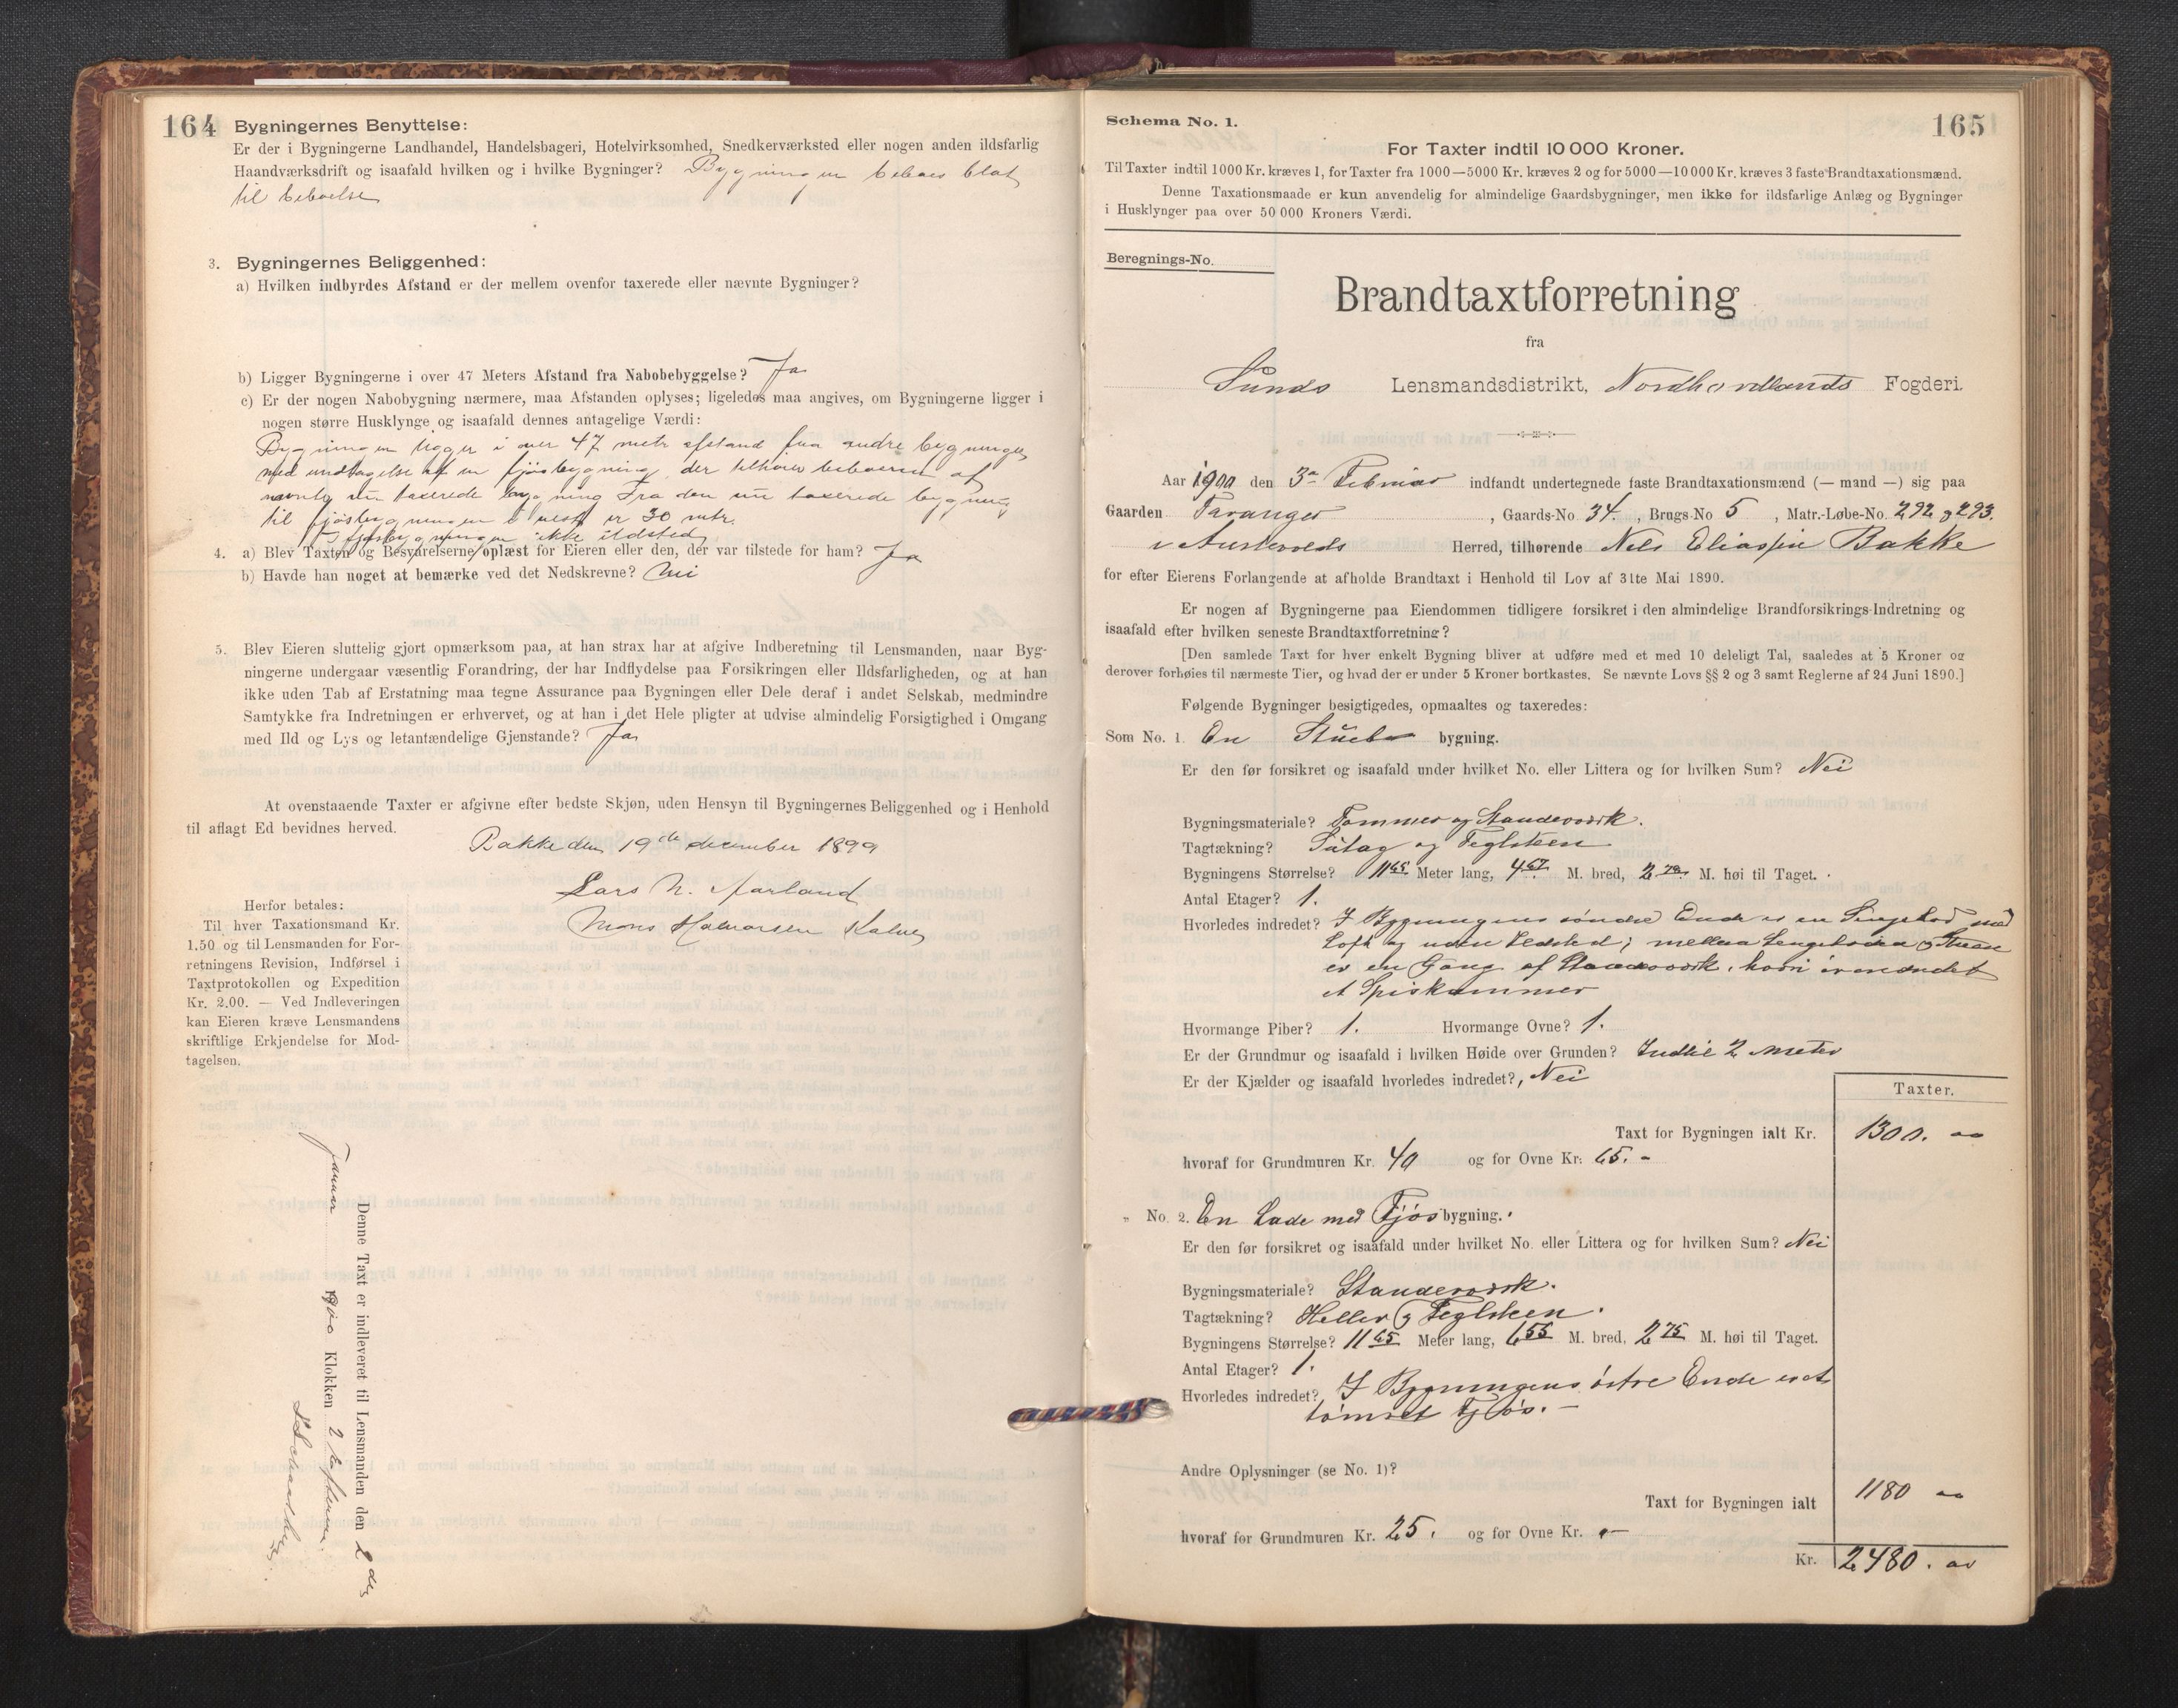 164
Bygningernes Benyttelse:
Er der i Bygningerne Landhandel, Handelsbageri, Hotelvirksomhed, Snedkerværksted eller nogen anden ildsfarlig
Haandværksdrift og isaafald hvilken og i hvilke Bygninger? Bygningen beboes blot
til beboelse
3. Bygningernes Beliggenhed:
a) Hvilken indbyrdes Afstand er der mellem ovenfor taxerede eller nævnte Bygninger?
b) Ligger Bygningerne i over 47 Meters Afstand fra Nabobebyggelse? Ja
c) Er der nogen Nabobygning nærmere, maa Afstanden oplyses; ligeledes maa angives, om Bygningerne ligger i
nogen større Husklynge og isaafald dennes antagelige Værdi:
Bygningen ligger i over 47 metr afstand fra andre bygninger
med undtagelse af en fjøsbygning, der tilhører beboeren af
nævnte nu taxerede bygning Fra den nu taxerede bygning
til fjøsbygningen er 30 mtr.
I fjøsbygningen ikke ildsted
4. a) Blev Taxten og Besvarelserne oplæst for Eieren eller den, der var tilstede for ham? Ja
b) Havde han noget at bemærke ved det Nedskrevne? Nei
5. Blev Eieren sluttelig gjort opmærksom paa, at han strax har at afgive Indberetning til Lensmanden, naar Byg-
ningerne undergaar væsentlig Forandring, der har Indflydelse paa Forsikringen eller Ildsfarligheden, og at han
ikke uden Tab af Erstatning maa tegne Assurance paa Bygningen eller Dele deraf i andet Selskab, medmindre
Samtykke fra Indretningen er erhvervet, og at han i det Hele pligter at udvise almindelig Forsigtighed i Omgang
med Ild og Lys og letantændelige Gjenstande? Ja
At ovenstaaende Taxter er afgivne efter bedste Skjøn, uden Hensyn til Bygningernes Beliggenhed og i Henhold
til aflagt Ed bevidnes herved.
Bakke den 19de december 1899
Lars N. Aarland
Mons Halvorsen Kalve
Herfor betales:
Til hver Taxationsmand Kr.
1.50 og til Lensmanden for For-
retningens Revision, Indførsel i
Taxtprotokollen og Expedition
Kr. 2.00. — Ved Indleveringen
kan Eieren kræve Lensmandens
skriftlige Erkjendelse for Mod-
tagelsen.
Denne Taxt er indleveret til Lensmanden den 2 den
Januar 1900 Klokken 2 Eftem.
165
Schema No. 1.
For Taxter indtil 10 000 Kroner.
Til Taxter indtil 1000 Kr. kræves 1, for Taxter fra 1000—5000 Kr. kræves 2 og for 5000—10000 Kr. kræves 3 faste Brandtaxationsmænd.
Denne Taxationsmaade er kun anvendelig for almindelige Gaardsbygninger, men ikke for ildsfarlige Anlæg og Bygninger
i Husklynger paa over 50 000 Kroners Værdi.
Beregnings-No.
Brandtaxtforretning
fra
Sunds Lensmandsdistrikt, Nordhordlands Fogderi.
Aar 1900 den 3e Februar indfandt undertegnede faste Brandtaxationsmænd (— mand —) sig paa
Gaarden Taranger , Gaards-No 34. , Brugs-No 5 , Matr.-Løbe-No. 292 og 293.
i Austevolds Herred, tilhørende Nels Eliassen Bakke
for efter Eierens Forlangende at afholde Brandtaxt i Henhold til Lov af 31te Mai 1890.
Er nogen af Bygningerne paa Eiendommen tidligere forsikret i den almindelige Brandforsikrings-Indretning og
isaafald efter hvilken seneste Brandtaxtforretning?
[Den samlede Taxt for hver enkelt Bygning bliver at udføre med et med 10 deleligt Tal, saaledes at 5 Kroner og
derover forhøies til nærmeste Tier, og hvad der er under 5 Kroner bortkastes. Se nævnte Lovs §§ 2 og 3 samt Reglerne af 24 Juni 1890.]
Følgende Bygninger besigtigedes, opmaaltes og taxeredes:
Som No. 1. En Stuebygning.
Er den før forsikret og isaafald under hvilket No. eller Littera og for hvilken Sum? Nei
Bygningsmateriale? Tømmer og Standerværk.
Tagtækning? Sutag og Teglsteen
Bygningens Størrelse? 11 65 Meter lang, 4 67 M. bred, 2 70 M. høi til Taget.
Antal Etager? 1.
Hvorledes indredet? I Bygningens søndre Ende er en Sengebod med
Loft og uden Ildsted; mellem Sengeboden og Stuen
er en Gang af Standerværk, hvori er indredet
et Spiskammer
Hvormange Piber? 1. Hvormange Ovne? 1.
Er der Grundmur og isaafald i hvilken Høide over Grunden? Indtil 2 Meter
Er der Kjælder og isaafald hvorledes indredet?, Nei
Taxter.
Taxt for Bygningen ialt Kr. 1300. 00
hvoraf for Grundmuren Kr. 40 og for Ovne Kr. 65. -
" No. 2. En Lade med Fjøsbygning.
Er den før forsikret og isaafald under hvilket No. eller Littera og for hvilken Sum? Nei
Bygningsmateriale? Standerværk.
Tagtækning? Heller og Teglsteen.
Bygningens Størrelse? 11 65 Meter lang, 6 55 M. bred, 2 75 M. høi til Taget.
Antal Etager? 1.
Hvorledes indredet? I Bygningens østre Ende er et
tømret Fjøs. —
Andre Oplysninger (se No. 1)?
Taxt for Bygningen ialt 1180 00
hvoraf for Grundmuren Kr. 25. og for Ovne Kr. "—
Kr. 2480. 00